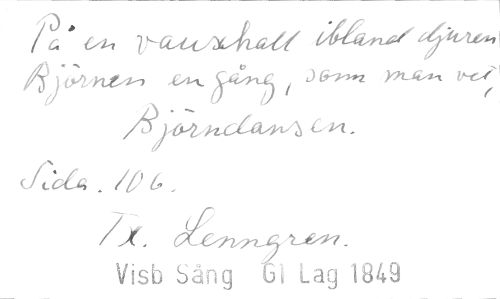 På en vauxhall ibland djuren
Björnen en gång, som man vet,
Björndansen.
Sida. 106.
Tx. Lenngren.
Visb Sång Gl Lag 1849